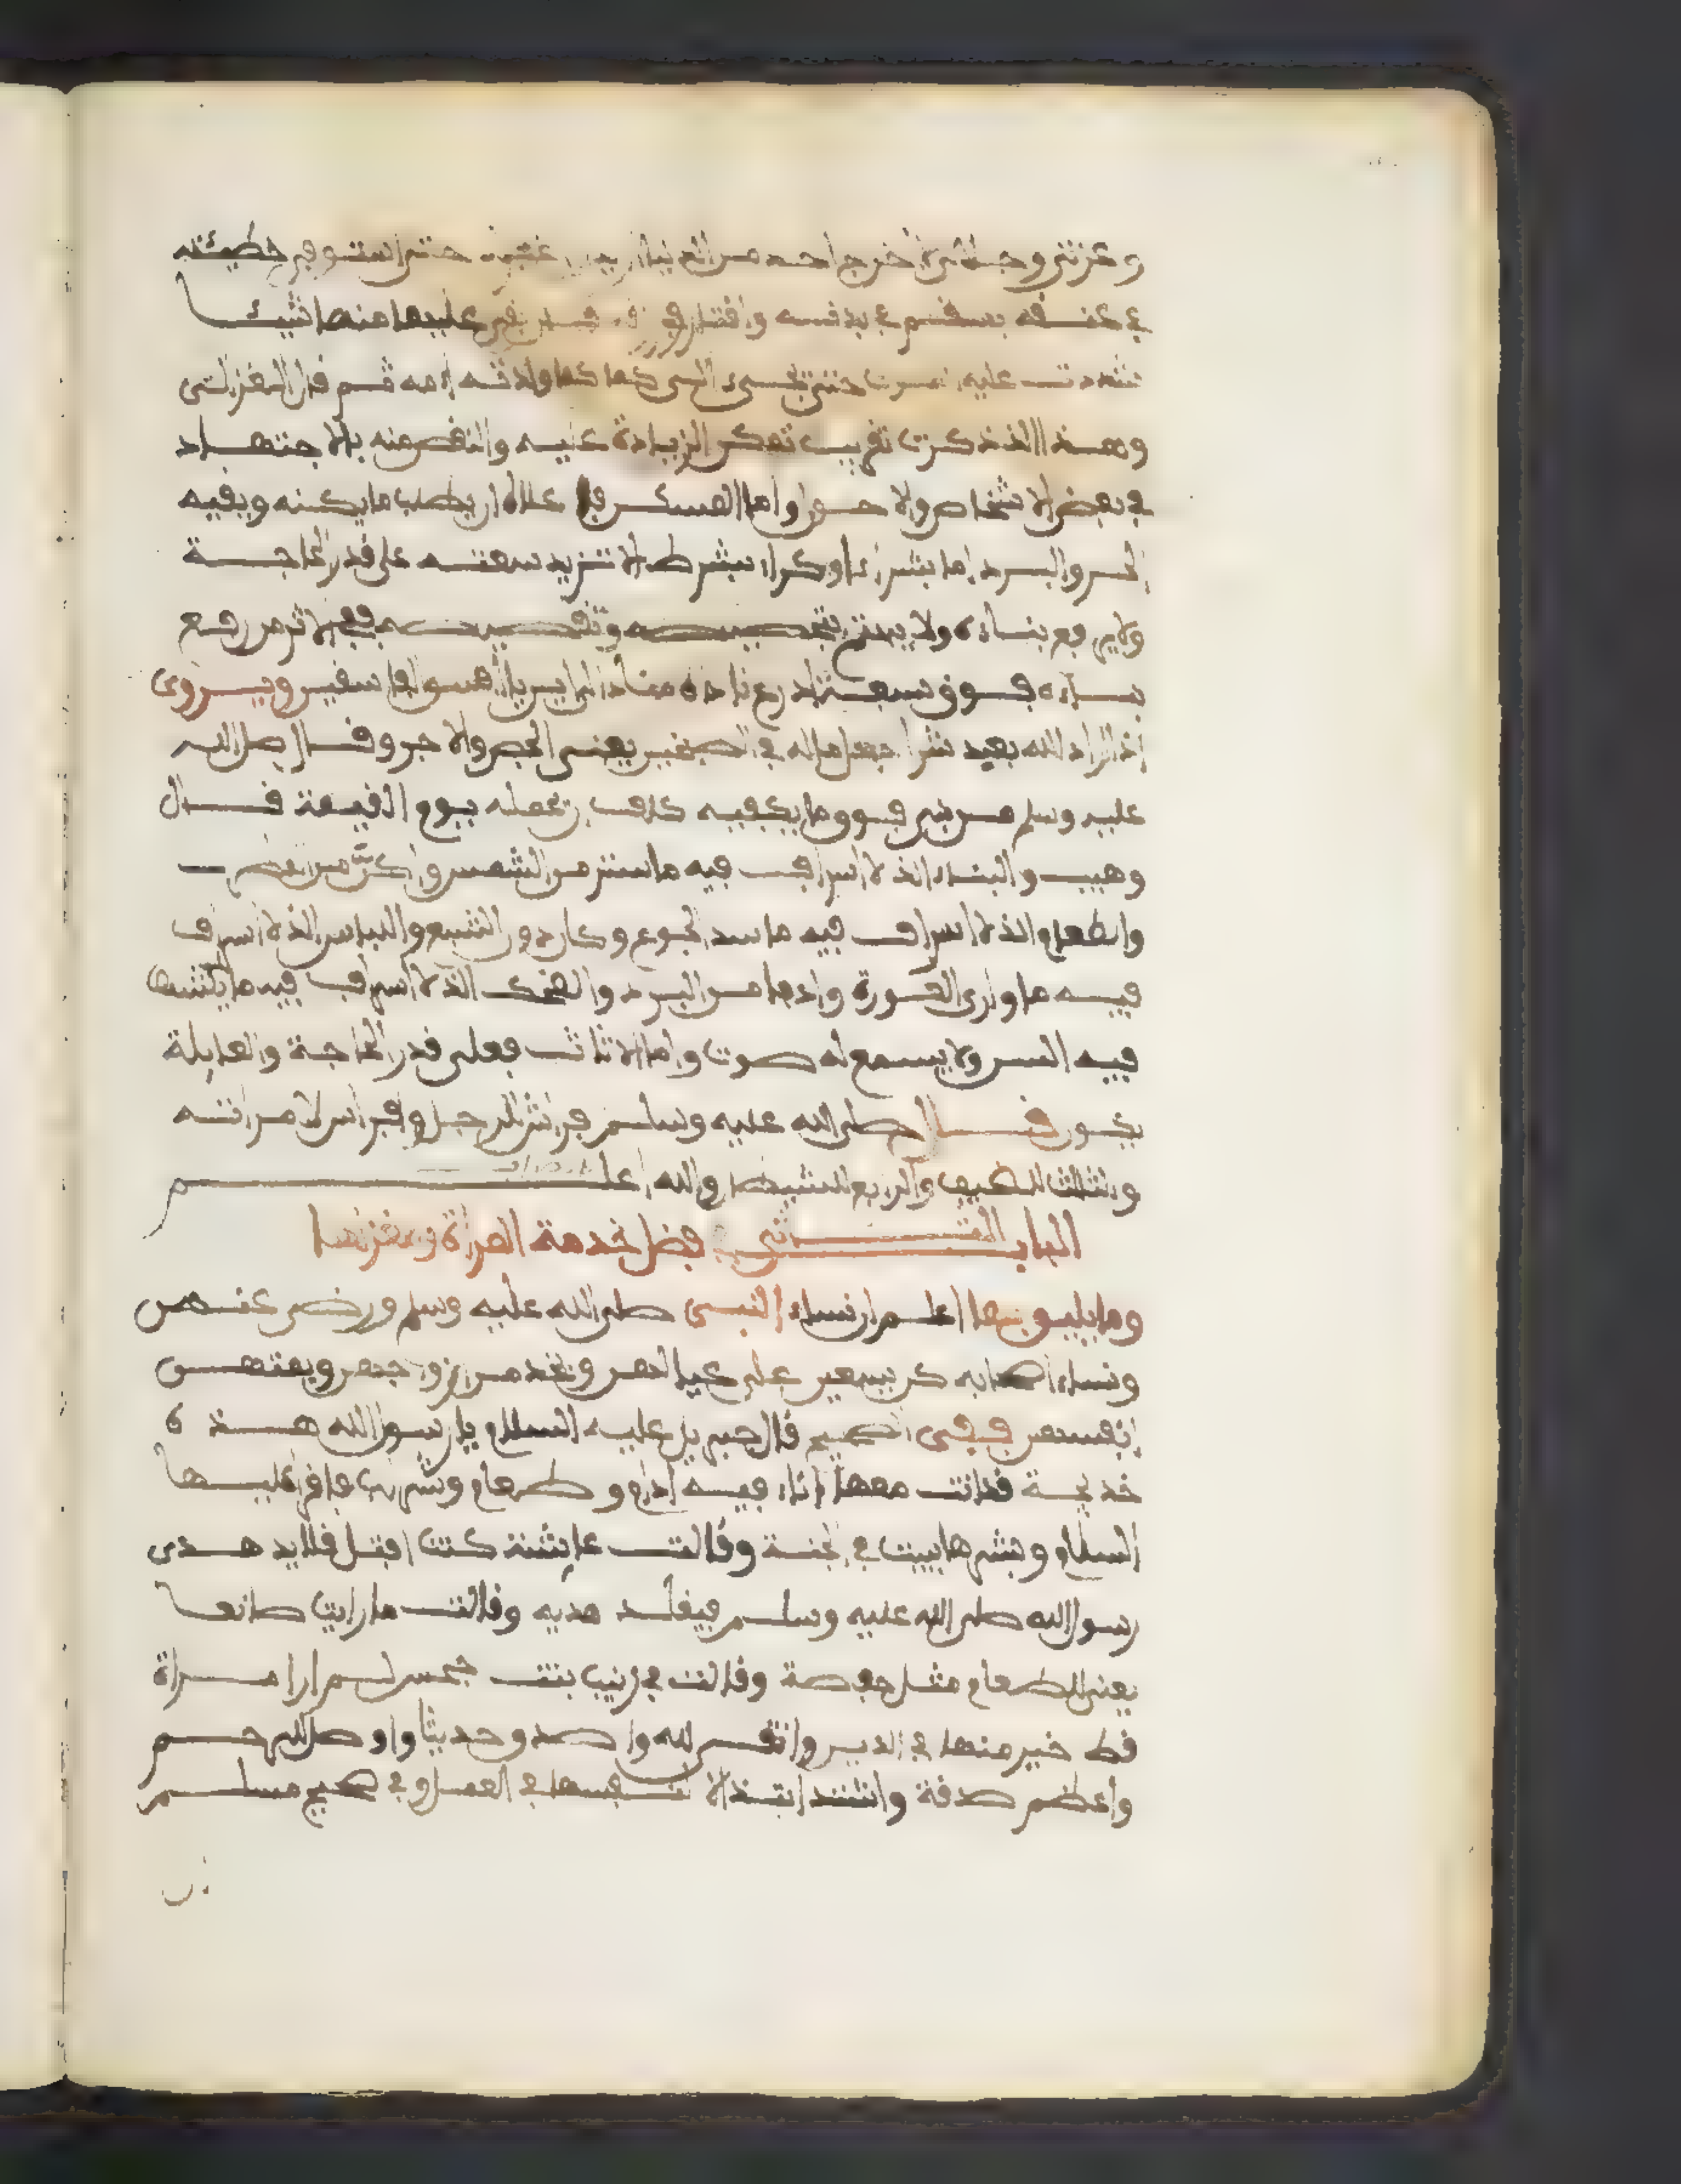 وعزتي وجلالي لا أخرج احد من الدنيا حتى استوفي خطيئته
في عنقه بسقم في بدنه واقتار في فان بقي عليها منها شيئا
شددت عليه حتى كما ولدته امه ثم قال الغزالي
وهذا الذي ذكرت تقريب تمكن الزيادة عليه والنقص منه بالاجتهاد
في بعض الاشخاص والاحوال واما المسكن ان يطلب ما يكنه ويقيه
الحر والبرد اما بشراء او كراء بشرط الا تزيد سعته على قدر الحاجة
ولا يرفع بناءه ولا يعتني بتجصيصه ففي الاثر من رفع
بناءه فوق سعة اذرع ناداه مناد الى اين يا افسق الفاسقين ويروى
اذا اراد الله بعبد شرا جعل ماله في يعني الجص والاجر وقال صلى الله
عليه وسلم من بنى فوق ما يكفيه كلف ان يحمله يوم القيمة قال
وهيب والبناء الذي لا اسراف فيه ما ستر من الشمس واكن من المطر
والطعام الذي لا اسراف فيه ما سد الجوع وكان دون الشبع واللباس الذي لا اسراف
فيه ما وارى العورة وادفا من البرد والضحك الذي لا اسراف فيه ما
فيه السن ولا يسمع له صوت واما الاثاث فعلى قدر الحاجة والعايلة
يكون قال صلى الله عليه وسلم فراش للرجل وفراش لامراته
والثالث للضيف والرابع للشيطان والله اعلم
الباب الثاني في فضل خدمة المراة وغزلها
وما يليق بها اعلم ان نساء النبي صلى الله عليه وسلم ورضي عنهن
ونساء اصحابه كن يسعين على عيالهن وتخدمن ازواجهن ويمتهن
انفسهن ففي الصحيح قال جبريل عليه السلام يا رسول الله هذه
خديجة قد اتت معها اناء فيه ادام وطعام وشراب فاقرا عليها
السلام وبشرها ببيت في الجنة وقالت عايشة كنت افتل قلايد هدي
رسول الله صلى الله عليه وسلم فيقلد هديه وقالت ما رايت صانعا
يعني للطعام مثل حفصة وقالت في زينب بنت جحش لم ار امراة
قط خير منها في الدين واتقى لله واصدق حديثا واوصل للرحم
واعظم صدقة واشد ابتذالا لنفسها في العمل وفي صحيح مسلم